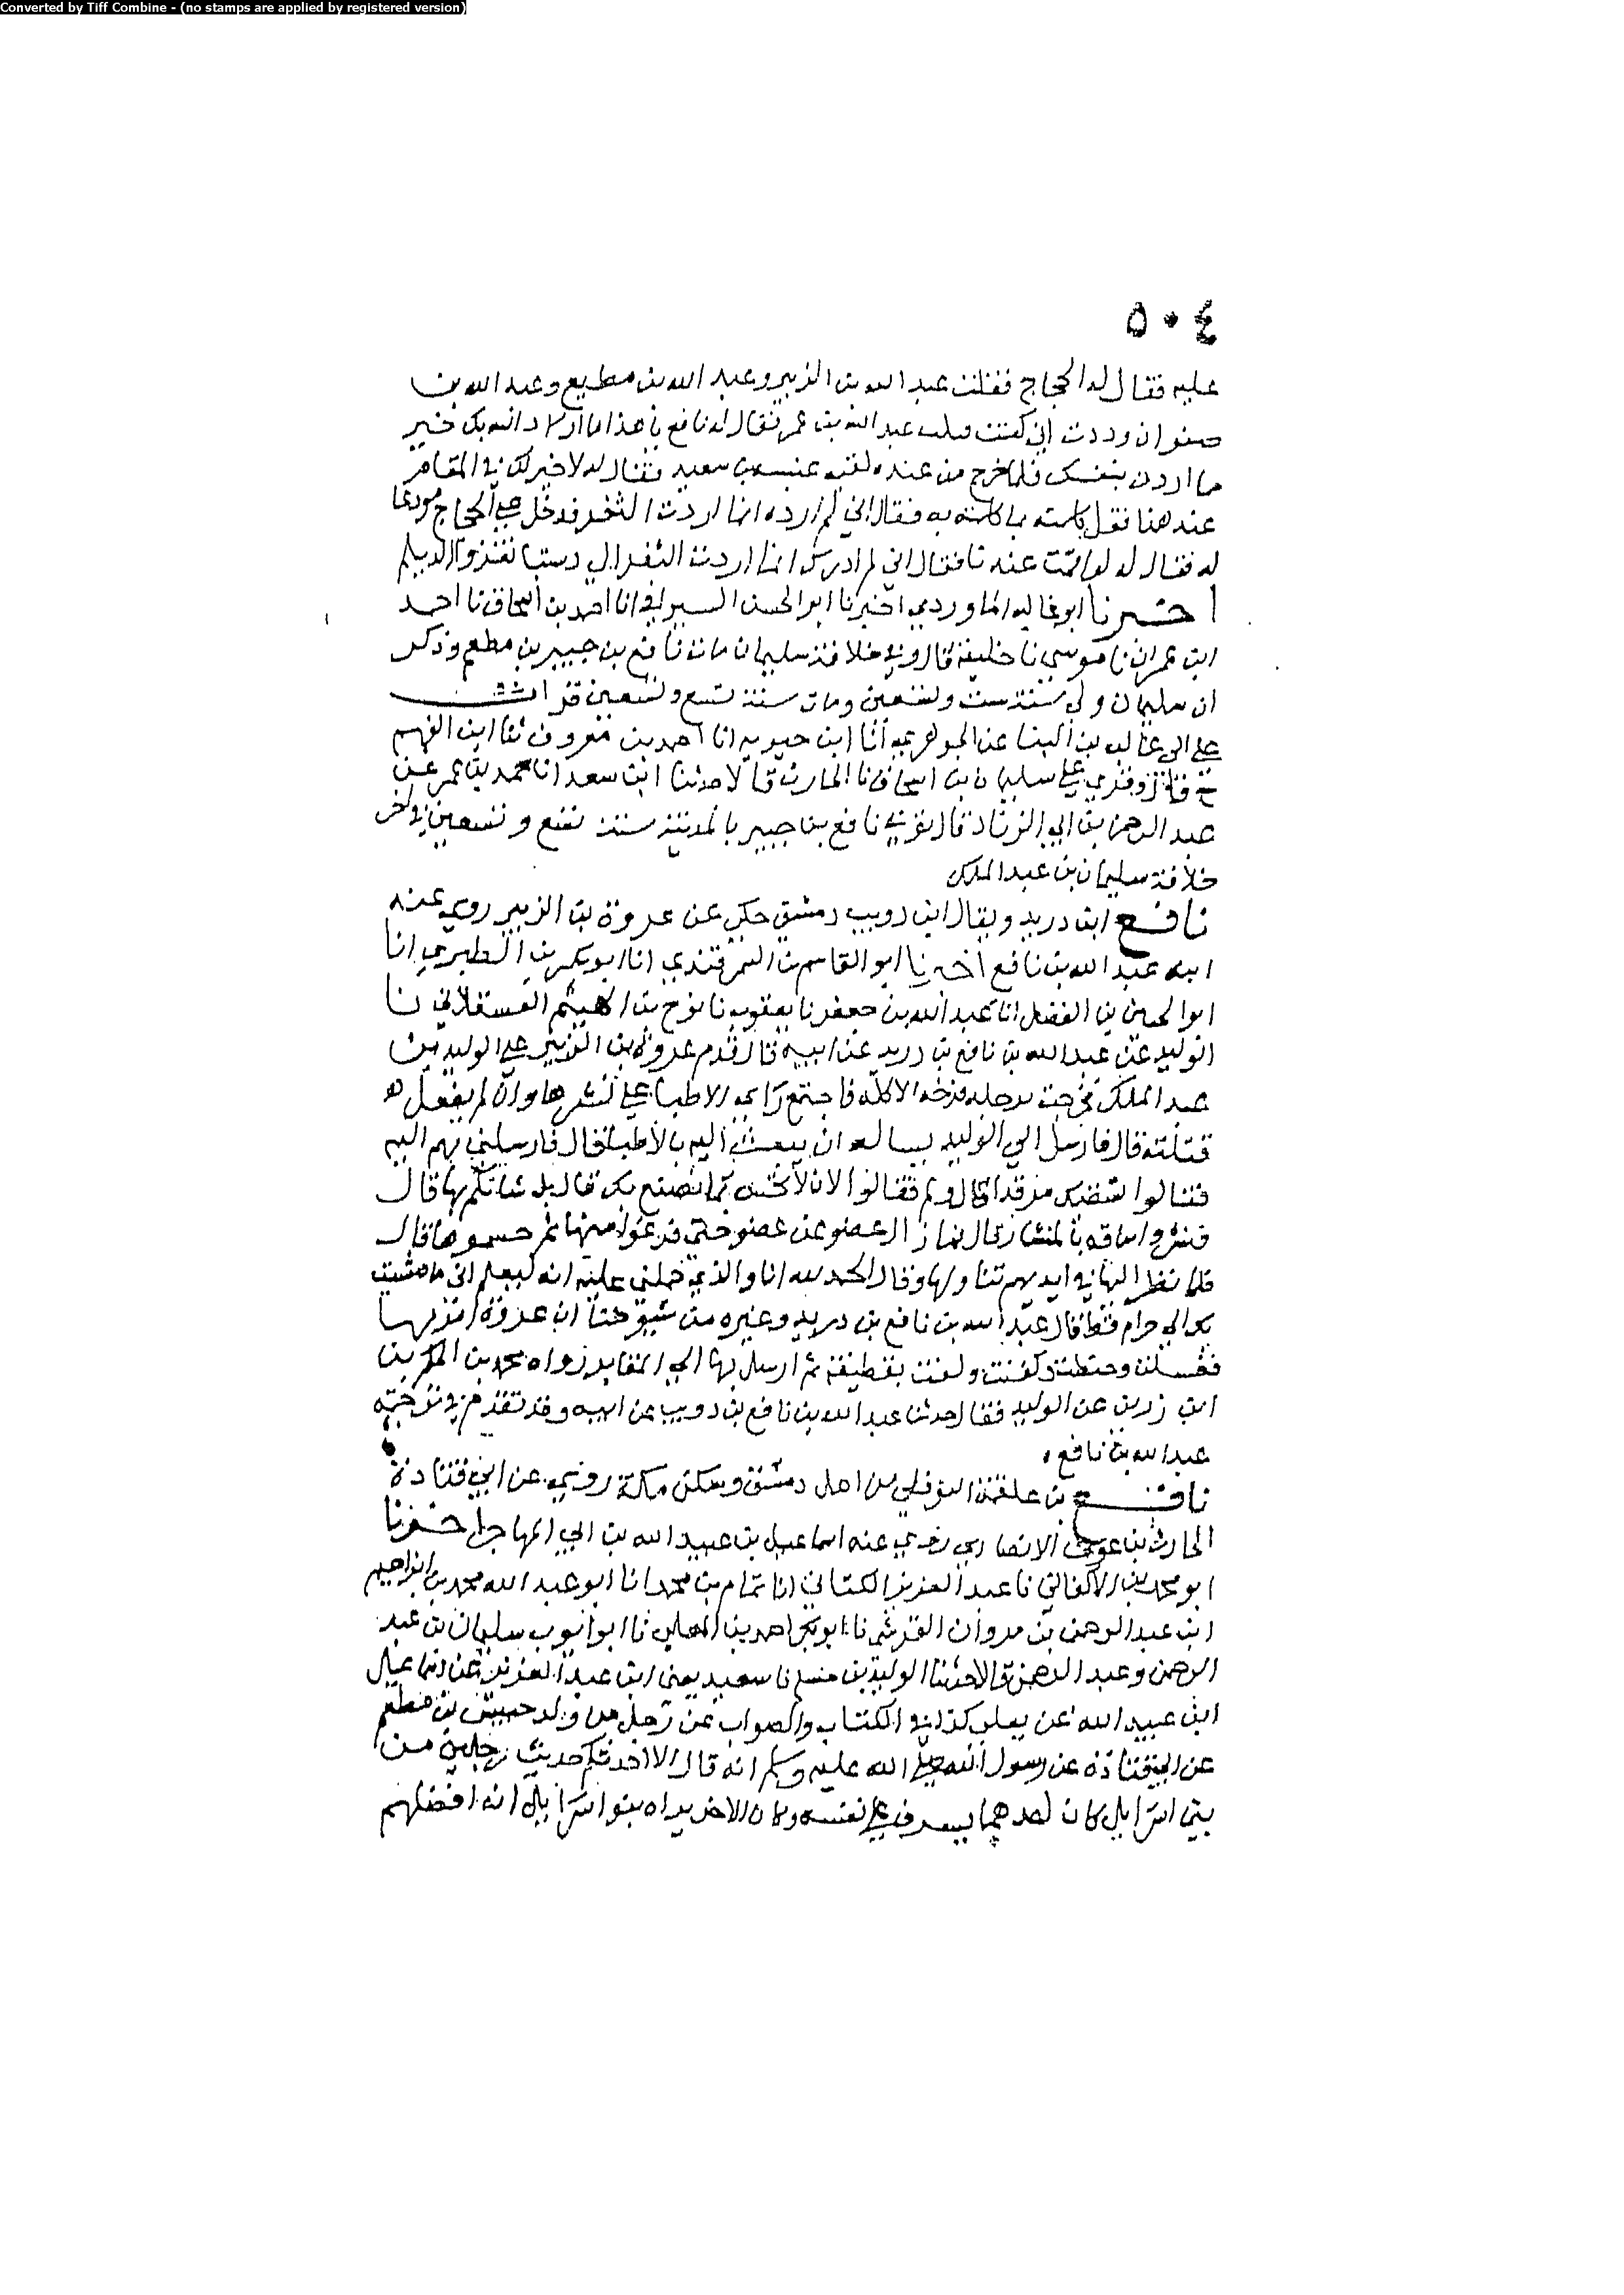 Converted by Tiff Combine - (no stamps are applied by registered version)
٥٠٤
عليه فقال له الحجاج فقتلت عبد الله بن الزبير وعبد الله بن مطيع وعبد الله بن
صفوان وددت اني كنت قتلت عبد الله بن عمر فقال له نافع يا هذا ما اراد الله بك خير
ما اردت بنفسك فلما خرج من عنده لقيه عنبسة بن سعيد فقال له لا خير لك في المقام
عند هذا نقل كلمته بما كلمته به فقال اني لم ارده انما اردت الثغر فدخل على الحجاج مودعا
له فقال له لو اقمت عندنا فقال اني لم ادرك انما اردت الثغر الى دستبا نغزو الديلم
اخبرنا ابو غالب الماوردي اخبرنا ابو الحسن السيرافي انا احمد بن اسحاق نا احمد
ابن عمران نا موسى نا خليفة قال وفي خلافة سليمان مات نافع بن جبير بن مطعم وذكر
ان سليمان ولي سنة ست وتسعين ومات سنة تسع وتسعين قرات
على ابي غالب بن البنا عن الجوهري انا ابن حيويه انا احمد بن معروف نا ابن الفهم
ح قال وقري على سليمان بن اسحاق نا الحارث قالا حدثنا ابن سعد انا محمد بن عمر عن
عبد الرحمن بن ابي الزناد قال توفي نافع بن جبير بالمدينة سنة تسع وتسعين في اخر
خلافة سليمان بن عبد الملك
نافع ابن دريد ويقال ابن دويب دمشقي حكى عن عروة بن الزبير روى عنه
ابنه عبد الله بن نافع اخبرنا ابو القاسم بن السمرقندي انا ابو بكر بن الطبري انا
ابو الحسين بن الفضل انا عبد الله بن جعفر نا يعقوب نا نوح بن الهيثم العسقلاني نا
الوليد عن عبد الله بن نافع بن دريد عن ابيه قال قدم عروة بن الزبير على الوليد بن
عبد الملك فخرجت برجله قرحة الاكلة فاجتمع راي الاطبا على نشرها وان لم يفعل
قتلته قال فارسل الى الوليد يساله ان يبعث اليه بالاطبا قال فارسلني بهم اليه
فقالوا نسقيك مرقدا قال ولم فقالوا لان لا تحس بما نصنع بك قال بل شانكم بها قال
فنشروا ساقه بالمنشار قال فما زال عضو عن عضو حتى فرغوا منها ثم حسموها قال
فلما نظر اليها في ايديهم تناولها وقال الحمد لله اما والذي حملني عليك انه ليعلم اني ما مشيت
بك الى حرام قط قال عبد الله بن نافع بن دريد وغيره من شيوخنا ان عروة امر بها
فغسلت وحنطت وكفنت ولفت بقطيفة ثم ارسل بها الى المقابر رواه محمد بن المكرمين
ابن رزين عن الوليد فقال حدثنا عبد الله بن نافع بن دويب عن ابيه وقد تقدم في ترجمة
عبد الله بن نافع
نافع بن علقمة النوفلي من اهل دمشق وسكن مكة روى عن ابي قتادة
الحارث بن عوف الانصاري روى عنه اسماعيل بن عبيد الله بن ابي المهاجر اخبرنا
ابو محمد بن الاكفاني نا عبد العزيز الكتاني انا تمام بن محمد انا ابو عبد الله محمد بن ابراهيم
ابن عبد الرحمن بن مروان القرشي نا ابو بكر احمد بن المعلى نا ابو ايوب سليمان بن عبد
الرحمن وعبد الرحمن قالا حدثنا الوليد بن مسلم نا سعيد يعني ابن عبد العزيز عن اسماعيل
ابن عبيد الله عن يعلى كذا في الكتاب والصواب عن رجل من ولد جبير بن مطعم
عن ابي قتادة عن رسول الله صلى الله عليه وسلم انه قال الا احدثكم حديث رجلين من
بني اسرايل كان احدهما يسرف على نفسه وكان الاخر يراه بنو اسرايل انه افضلهم